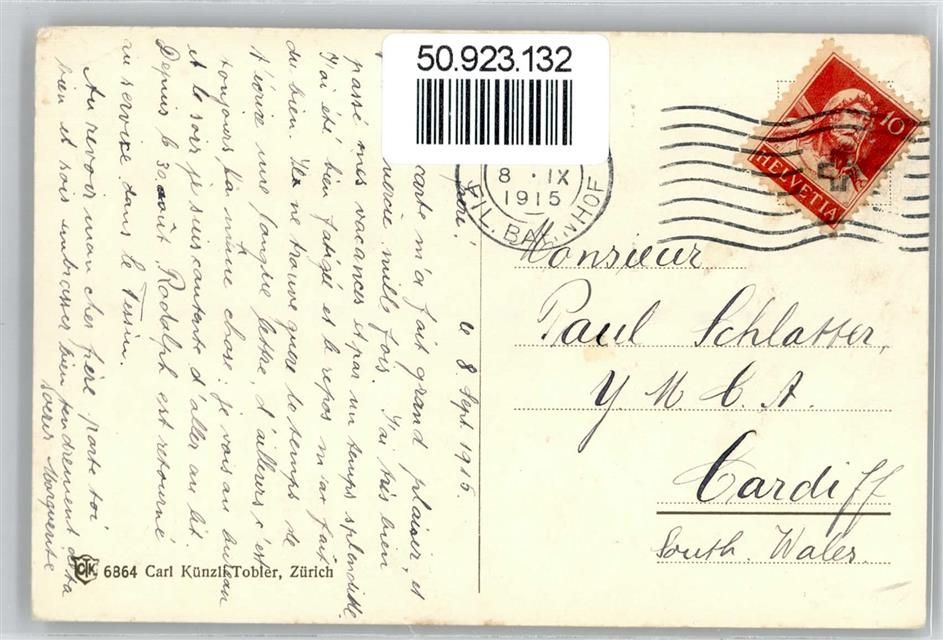 50.923.132
8 · IX
1915
FIL. BAHNHOF
10
HELVETIA
Monsieur
Paul Schlatter,
Y M C A.
Cardiff
South. Wales.
le 8 Sept. 1915.
frère!
carte m'a fait grand plaisir, et
mille fois. J'ai très bien
passé mes vacances et par un temps splendide.
J'ai été bien fatigée et le repos m'a fait
du bien. Je ne trouve guère le temps de
t'écrire une longue lettre, d'ailleurs c'est
toujours la même chose: je vais au bureau
et le soir je suis contente d'aller au lit.
Depuis le 30 août Rodolph est retourné
au service dans le Tessin.
Au revoir mon cher frère porte toi
bien et sois embrassé bien tendrement de ta
soeur Marguerite
CTK 6864 Carl Künzli-Tobler, Zürich